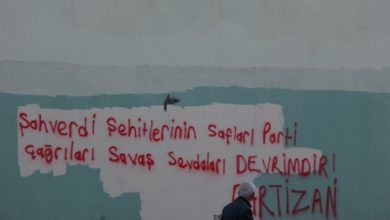 Şahverdi Şehitlerinin Safları Parti
çağrıları Savaş Sevdaları DEVRİMDİR!
PARTİZAN